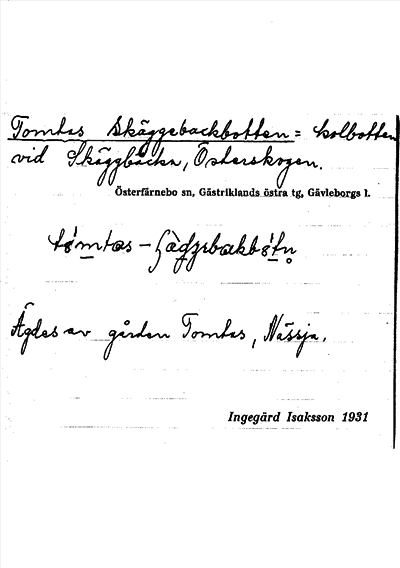 Tomtas Skäggebackbotten = kolbotten
vid Skäggbacka, Österskogen.
Österfärnebo sn, Gästriklands östra tg, Gävleborgs l.
Ägdes av gården Tomtas, Nässja.
Ingegärd Isaksson 1931